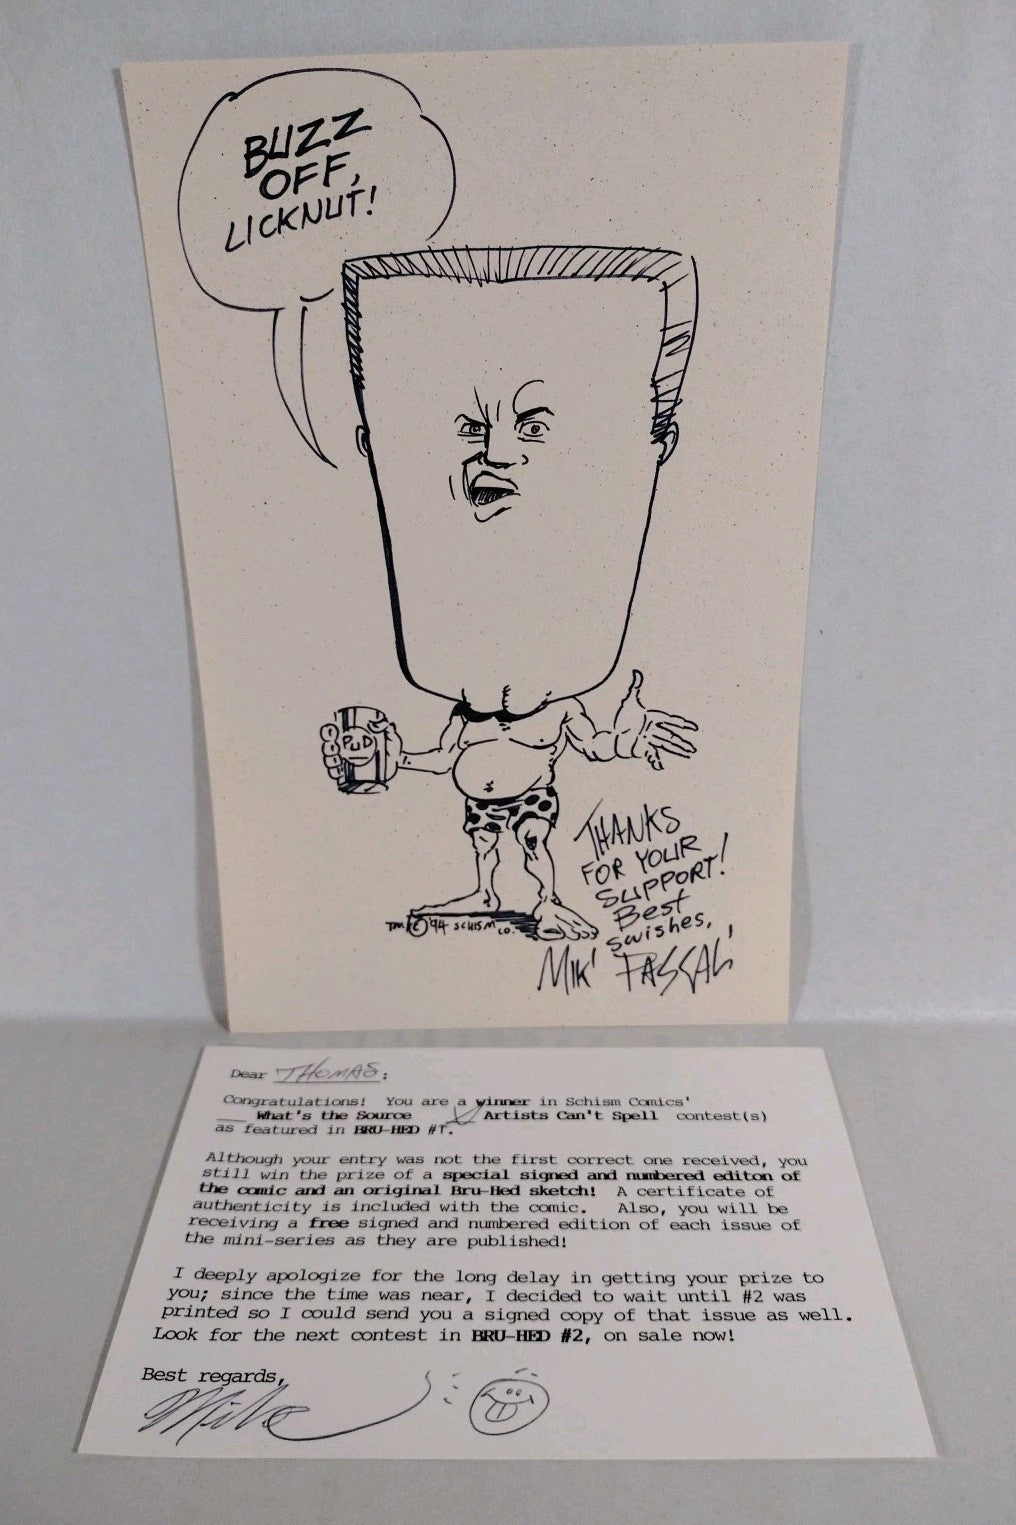 BUZZ
OFF,
LICKNUT!
PUD
THANKS
FOR YOUR
SUPPORT!
Best
swishes,
MIK' PASCAL'
TM. © '94 SCHISM CO.
Dear THOMAS:
Congratulations! You are a winner in Schism Comics'
___ What's the Source ___ Artists Can't Spell contest(s)
as featured in BRU-HED #1.
Although your entry was not the first correct one received, you
still win the prize of a special signed and numbered editon of
the comic and an original Bru-Hed sketch! A certificate of
authenticity is included with the comic. Also, you will be
receiving a free signed and numbered edition of each issue of
the mini-series as they are published!
I deeply apologize for the long delay in getting your prize to
you; since the time was near, I decided to wait until #2 was
printed so I could send you a signed copy of that issue as well.
Look for the next contest in BRU-HED #2, on sale now!
Best regards,
Mike